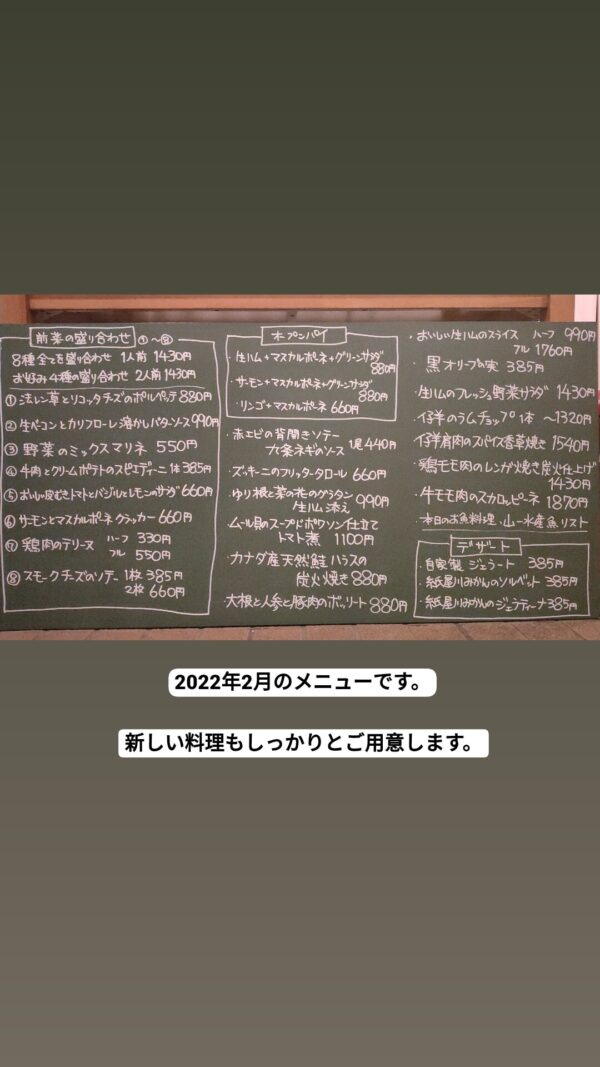 前菜の盛り合わせ ①〜⑧
8種全てを盛り合わせ 1人前 1430円
お好み4種の盛り合わせ 2人前 1430円
①法レン草とリコッタチーズのポルペッテ 880円
②生ベーコンとカリフローレ 溶かしバターソース 990円
③野菜のミックスマリネ 550円
④牛肉とクリームポテトのスピエディーニ 1本 385円
⑤おいしい皮むきトマトとバジルとレモンのサラダ 660円
⑥サーモンとマスカルポーネ クラッカー 660円
⑦鶏肉のテリーヌ ハーフ 330円
フル 550円
⑧スモークチーズのソテー 1枚 385円
2枚 660円
オープンパイ
・生ハム+マスカルポーネ+グリーンサラダ
880円
・サーモン+マスカルポーネ+グリーンサラダ
880円
・リンゴ+マスカルポーネ 660円
・赤エビの背開きソテー
九条ネギのソース 1尾 440円
・ズッキーニのフリッタータロール 660円
・ゆり根と菜の花のグラタン
生ハム添え 990円
・ムール貝のスープドポワソン仕立て
トマト煮 1100円
・カナダ産天然鮭ハラスの
炭火焼き 880円
大根と人参と豚肉のボッリート 880円
・おいしい生ハムのスライス ハーフ 990円
フル 1760円
・黒オリーブの実 385円
・生ハムのフレッシュ野菜サラダ 1430円
・仔羊のラムチョップ 1本 〜1320円
・仔羊肩肉のスパイス香草焼き 1540円
・鶏モモ肉のレンガ焼き炭火仕上げ
1430円
・牛モモ肉のスカロッピーネ 1870円
・本日のお魚料理・山一水産魚リスト
デザート
・自家製 ジェラート 385円
・紙屋川みかんのソルベット 385円
・紙屋川みかんのジェラティーナ 385円
2022年2月のメニューです。
新しい料理もしっかりとご用意します。